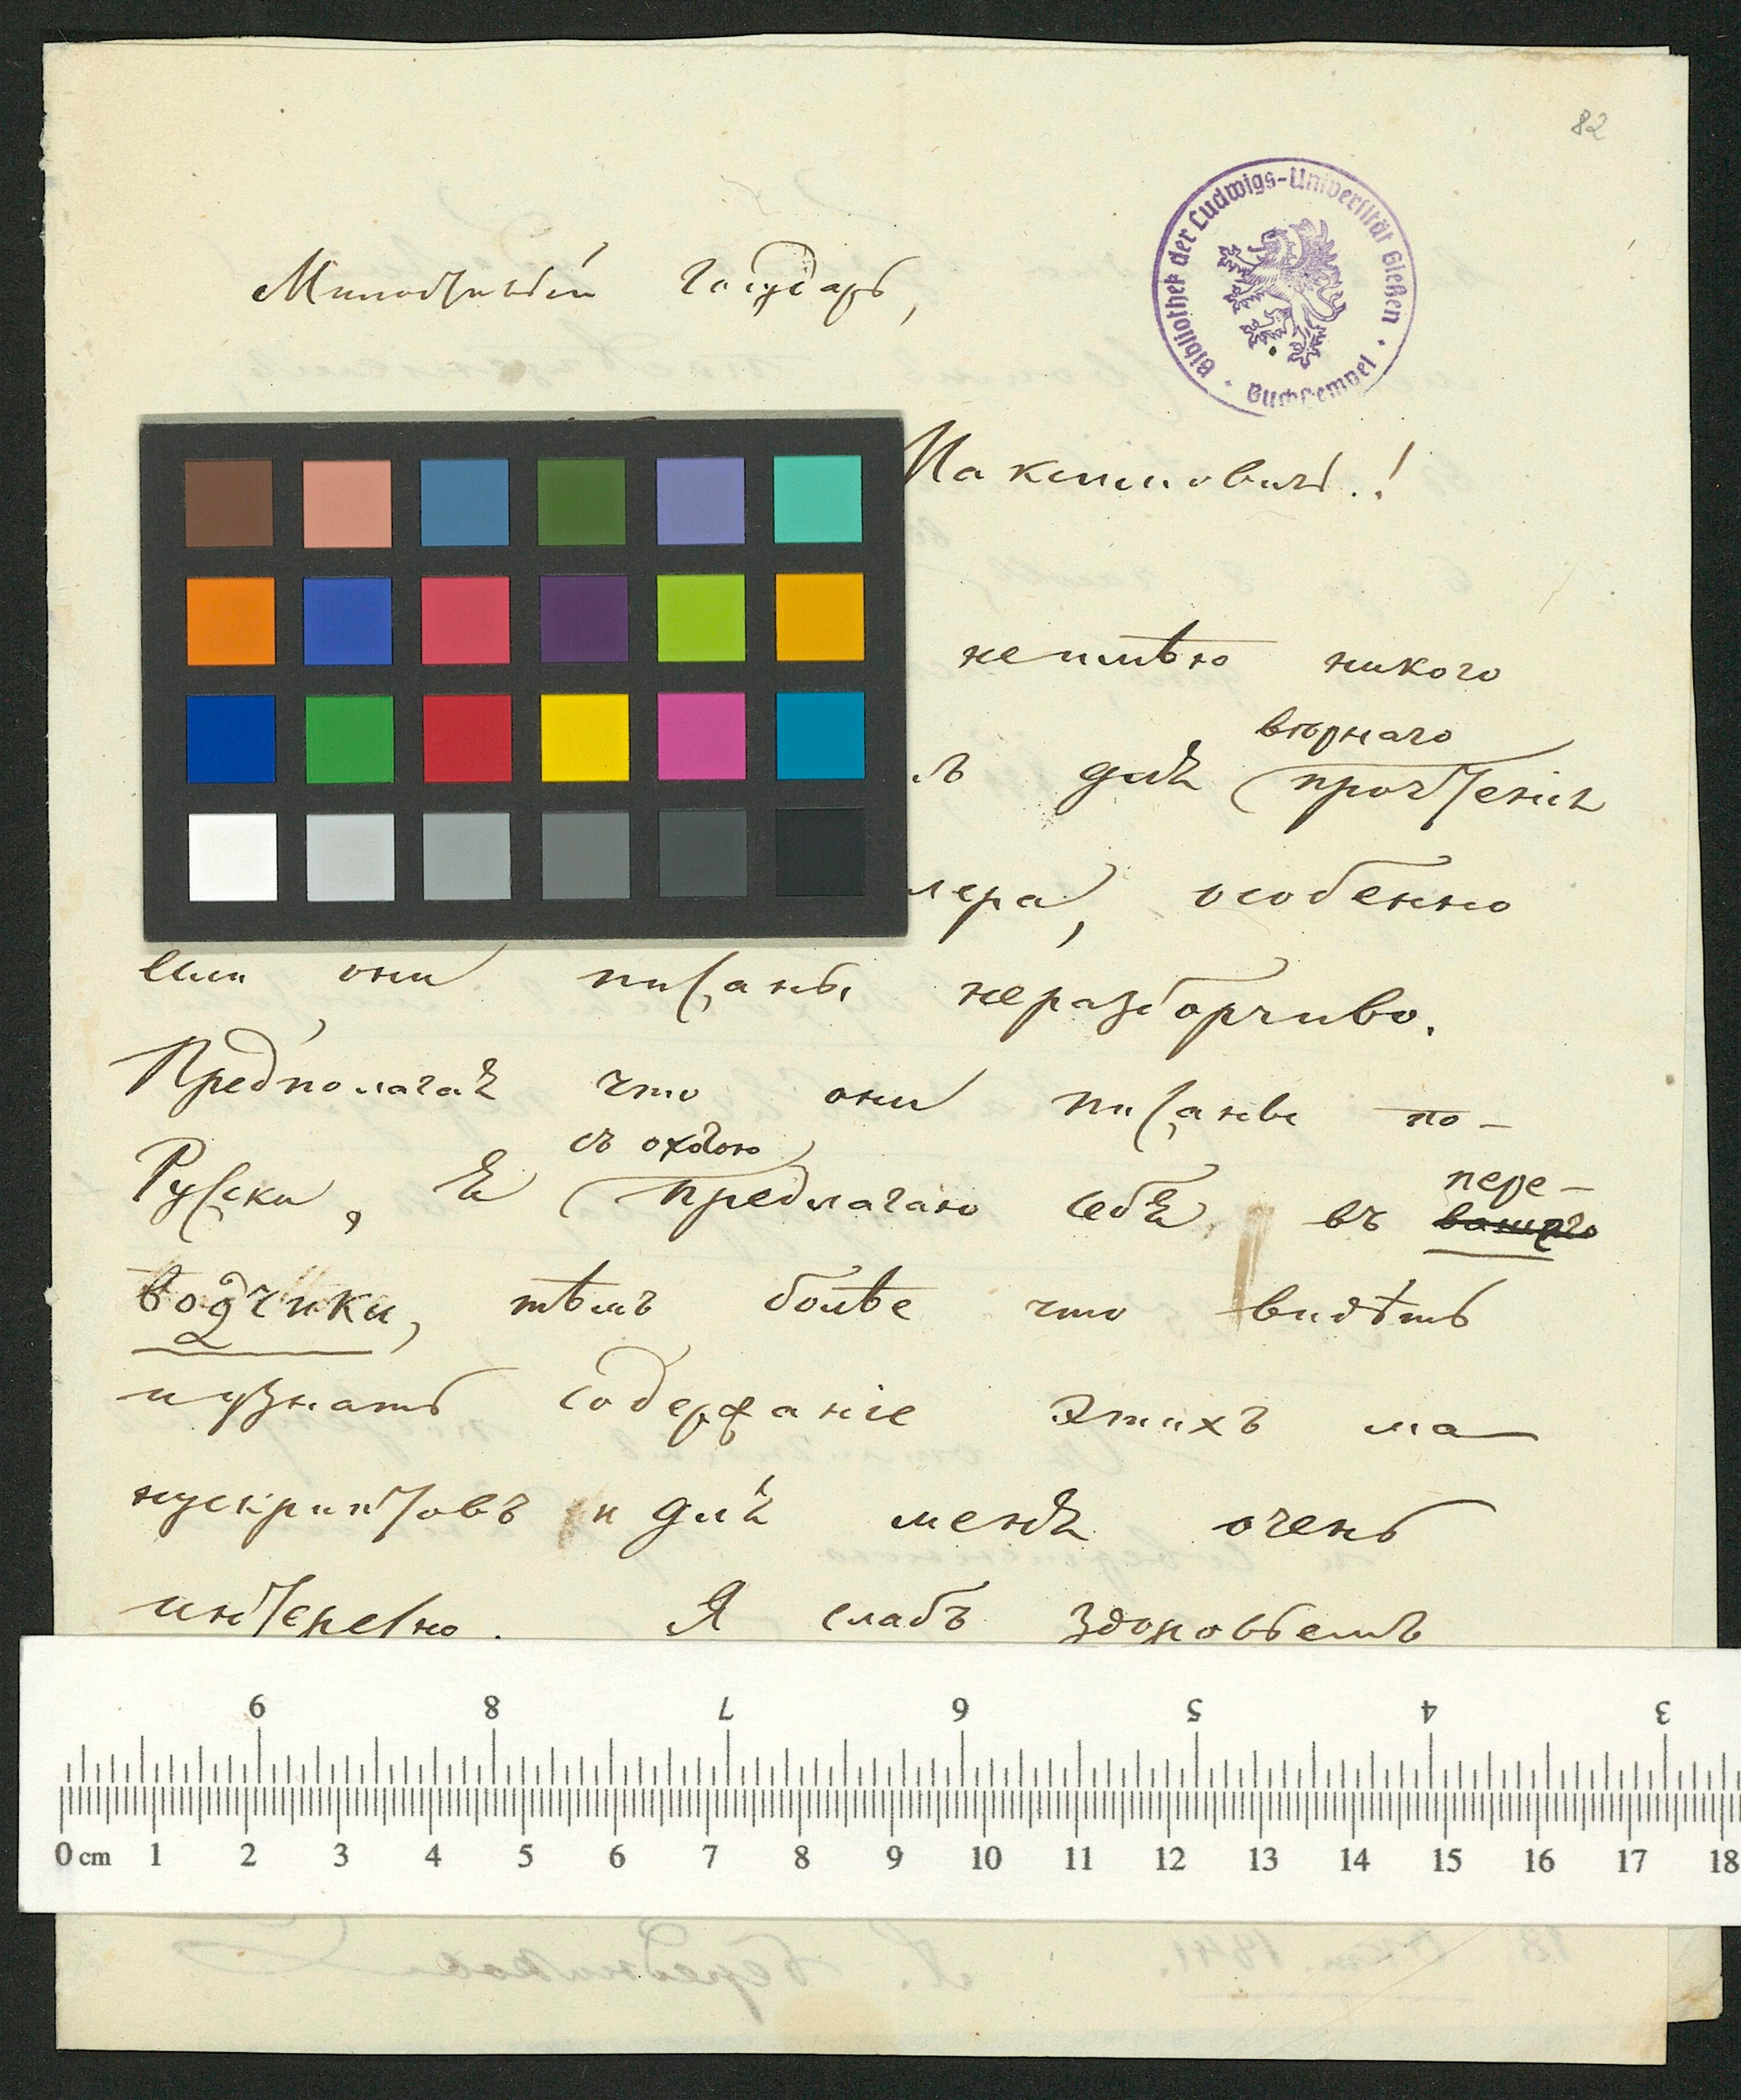 82
Bibliothek der Ludwigs-Universität Gießen
Buchstempel
Милостивый Государь,
Максимовичъ.!
неимѣю никого
вѣрнаго
для прочтенія
лера, особенно
если они писаны неразборчиво.
Предполагая что они писаны по-
съ охотою
Русски, я предлагаю себя въ вашего
пере-
водчики, тѣмъ болѣе что видѣть
иузнать содержаніе этихъ ма
нускриптовъ и для меня очень
интересно. Я слабъ здоровьемъ
9 8 7 6 5 4 3
0 cm 1 2 3 4 5 6 7 8 9 10 11 12 13 14 15 16 17 18
18 Окт. 1841. Я. Бередниковъ